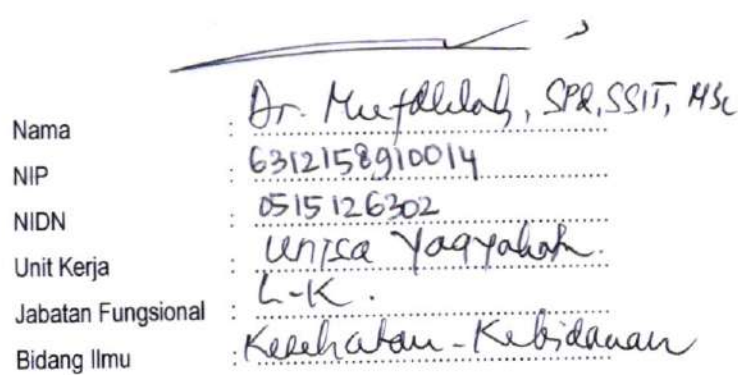 Nama : Dr. Mufdlilah, SPd, SSiT, MSc
NIP : 6312158910014
NIDN : 0515126302
Unit Kerja : Unisa Yogyakarta.
Jabatan Fungsional : L-K.
Bidang Ilmu : Kesehatan - Kebidanan